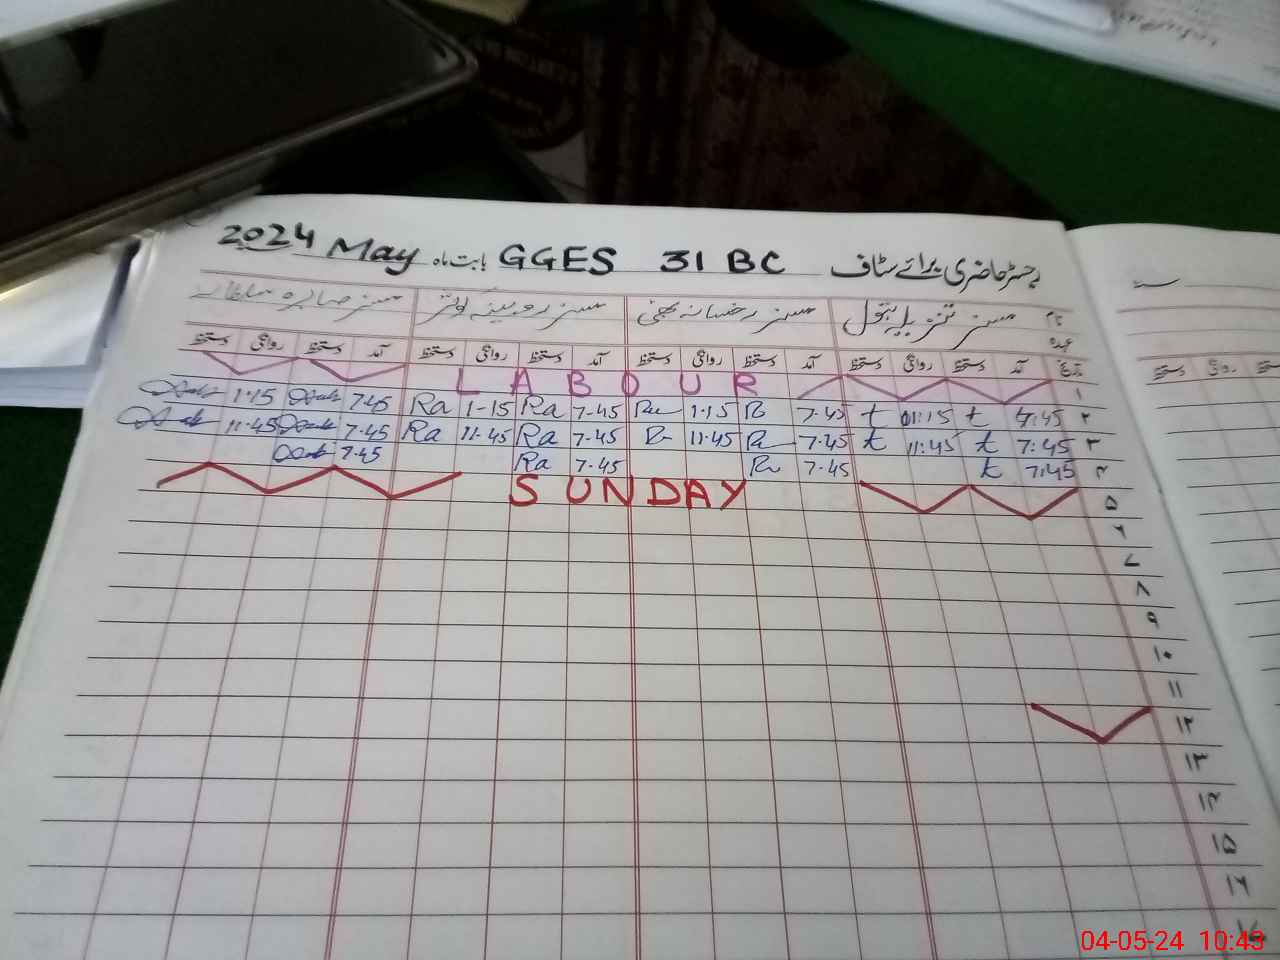 رجسٹر حاضری برائے سٹاف GGES 31 BC بابت ماہ May 2024
نام مسز تنزیلہ بتول مسز رخسانہ بھٹی مسز روبینہ کوثر مسز صابرہ سلطانہ
عہدہ
تاریخ آمد دستخط روانگی دستخط آمد دستخط روانگی دستخط آمد دستخط روانگی دستخط آمد دستخط روانگی دستخط
۱ LABOUR
۲ 7:45 t 01:15 t 7.45 R 1.15 Ru 7.45 Ra 1-15 Ra 7.45 1.15
۳ 7:45 t 11:45 t 7.45 Ru 11.45 R 7.45 Ra 11.45 Ra 7.45 11.45
۴ 7:45 t 7.45 Ru 7.45 Ra 7.45
۵ SUNDAY
۶
۷
۸
۹
۱۰
۱۱
۱۲
۱۳
۱۴
۱۵
۱۶
۱۷
04-05-24 10:43